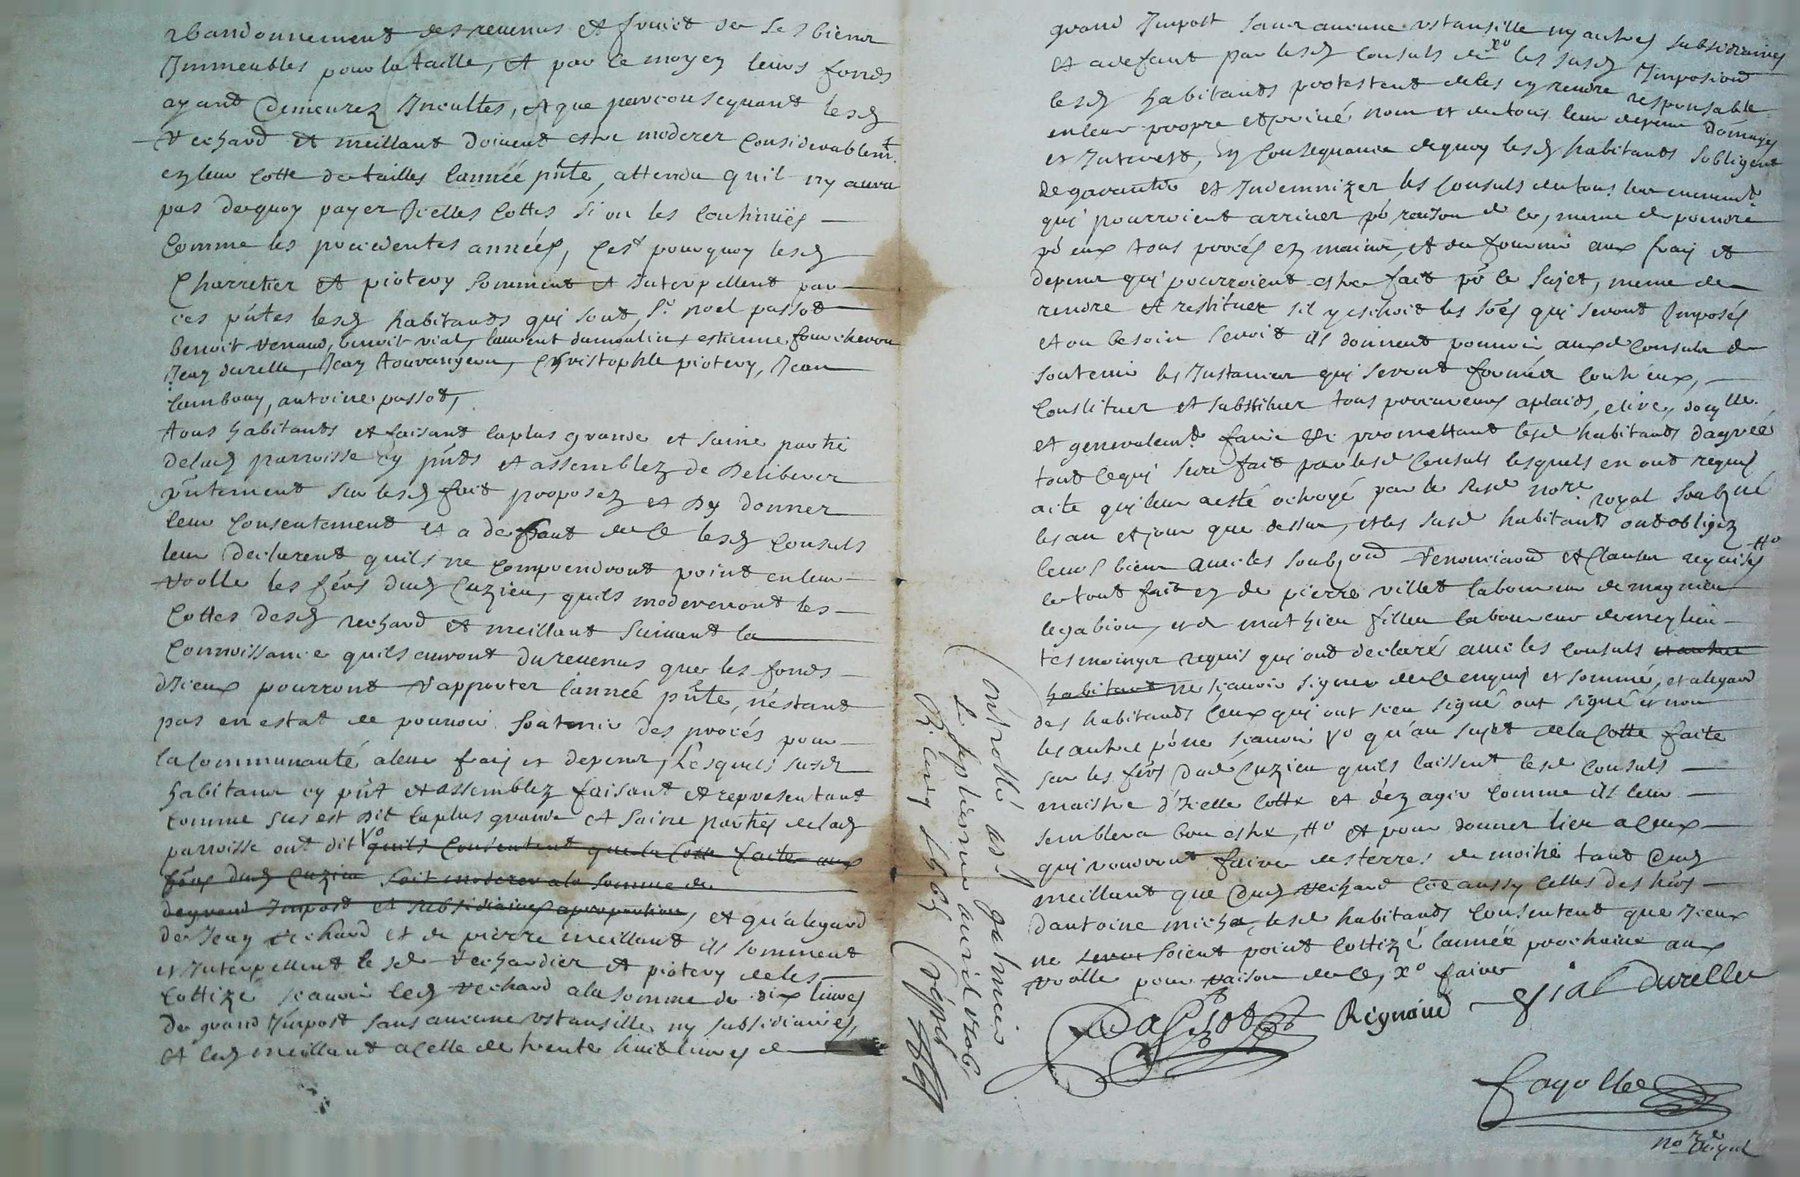 abandonnement des revenus et fruict de ses biens
Immeubles pour la taille, et par le moyen leurs fonds
ayant demeurez Incultes, et que par consequant lesd
rechard et meillant doivent estre moderer considerablemt
en leur cotte de tailles lannée pnte, attendu quil ny aura
pas dequoy payer Icelles cottes si on les continües
comme les precedentes années, cest pourquoy lesd
Charretier et piotery somment et Interpellent par
ces pntes lesd habitants qui sont, Sr noel passot
Benoit renaud, benoit vial, laurent dumoulin, estienne foucherou
Jean durelle, Jean touvanjeon, Christophle piotery, Jean
cambray, antoine passot,
tous habitants et faisant la plus grande et saine partie
delad parroisse cy pnts et assemblez de deliberer
pntement sur lesd fait proposez et dy donner
leur consentement et a deffaut de ce lesd consuls
leur declarent quils ne comprendront point en leur
roolle les férs dud Cuzieu, quils modereront les
cottes desd rechard et meillant suivant la
connoissance quils auront du revenus que les fonds
dIceux pourront rapporter lannée pnte, nestant
pas en estat de pouvoir soutenir des procés pour
la communauté a leur frais et depens, Lesquels susd
habitans cy pnt et assemblez faisant et representant
comme sus est dit la plus grande et saine parties delad
parroisse ont dit vo quils consentent que la cotte faite aux
férs dud Cuzieu soit moderer a la somme de
de grand Impost et subsidiaires aproportion, et qua legard
de Jean rechard et de pierre meillant ils somment
et Interpellent lesd rechardier et piotery de les
cottizé scavoir led rechard a la somme de dix livres
de grand Impost sans aucune ustansille ny subsidiaires,
et led meillant a celle de trente huit livres de
grand Impost sans aucune ustansille ny autres subsidiaires
et a defaut par lesd consuls de xo les susd Imposiond
lesd habitants protestent de les en rendre responsable
en leur propre et privé nom et de tous leur depens domages
et Interest, En consequance dequoy lesd habitants sobligent
de garentir et Indemnizer les consuls de tous les evenemts
qui pourroient arriver pr raison de ce, meme de prendre
pr eux tous procés en mains, et de fournir aux frais et
depens qui pourroient estre fait pr ce sujet, meme de
rendre et restituer sil y eschoit les sões qui seront Imposés
et ou besoin seroit ils donnent pouvoir auxd Consuls de
soutenir les Instances qui seront formées contr'eux,
constituer et substituer tous procureurs aplaids, elire domylle
et generalemt faire et promettant lesd habitants dagréé
tout ce qui sera fait par lesd consuls lesquels en ont requis
acte qui leur a esté octroyé par le susd nore royal soubzné
les an et jour que dessus, et les susd habitants ont obligez
leurs bien avec les soubzond renonciaond et clauses requises
le tout fait en de pierre villet laboureur de magnieu
le gabion, et de mathieu filleu laboureur de meylieu
tesmoings requis qui ont declaré avec les consuls et autres
habitant ne scavoir signer de ce enquis et sommé, et a legard
des habitants ceux qui ont sceu signé ont signé et non
les autre pour ne scavoir vo qu'au sujet de la cotte faite
sur les férs dud Cuzieu quils laissent lesd consuls
maistre d'Icelle cotte et den agir comme ils leur
semblera bon estre, Ho et pour donner lieu a ceux
qui voudront faire des terres de moitié tant dud
meillant que dud rechard coe aussy celles des hérs
dantoine micha, lesd habitants consentent que Iceux
ne seront soient point cottizé lannée prochaine aux
roolle pour raison de ce, xo faires
Passot Regnaud Vial Durelle
Fayolle
nore Royal
Controllé a st galmier
le septieme avril
R. cinq sols